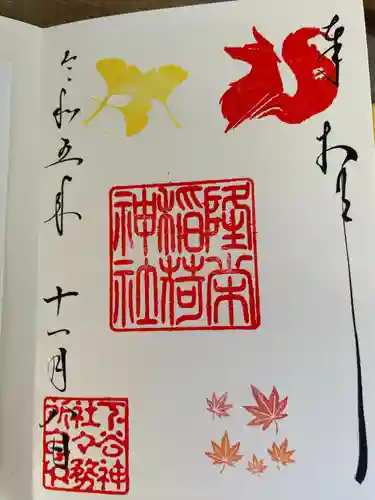 奉拝
隆栄
稲荷
神社
令和五年 十一月八日
下谷神
社々務
所之印